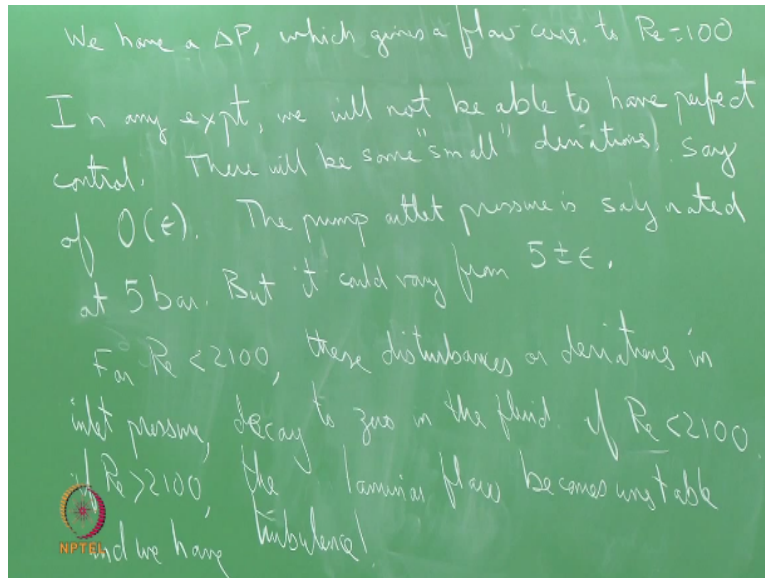 We have a ΔP, which gives a flow corr. to Re=100
In any expt, we will not be able to have perfect
control. There will be some "small" deviations, say
of O(ϵ). The pump outlet pressure is say rated
at 5 bar. But it could vary from 5±ϵ.
For Re <2100, these disturbances or deviations in
inlet pressure, decay to zero in the fluid. if Re <2100.
if Re >2100, the laminar flow becomes unstable
and we have turbulence!
NPTEL